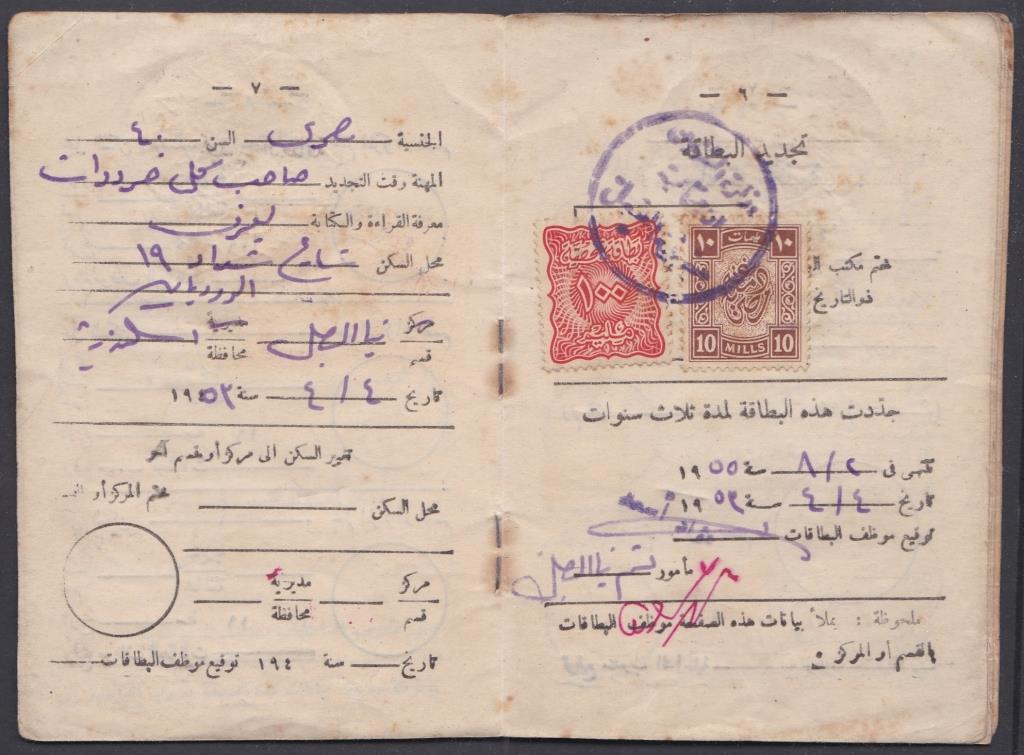 — ٦ —
تجديد البطاقة
١٠ ١٠
10 MILLS 10
بطاقات شخصية
١٠٠
مليم
ختم مكتب
فوالتاريخ
جددت هذه البطاقة لمدة ثلاث سنوات
تنتهى فى ٨/٢ سنة ١٩٥٥
تاريخ ٤/٤ سنة ١٩٥٣
توقيع موظف البطاقات
مأمور قسم مينا البصل
ملحوظة : يملأ بيانات هذه الصفحة موظف البطاقات
بالقسم أو المركز .
— ٧ —
الجنسية مصرى السن ٤٠
المهنة وقت التجديد صاحب محل خردوات
معرفة القراءة والكتابة يعرف
محل السكن شارع ١٩
الورديان
مركز قسم مينا البصل مديرية محافظة اسكندرية
تاريخ ٤/٤ سنة ١٩٥٣
تغيير السكن الى مركز أو قسم آخر
محل السكن ختم المركز أو
مركز مديرية
قسم محافظة
تاريخ سنة ١٩٤ توقيع موظف البطاقات